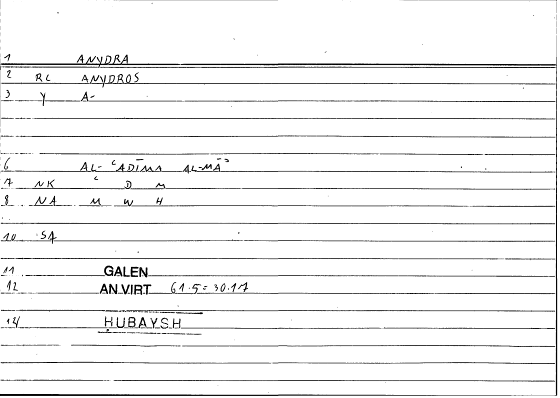 1 ANYDRA
2 RL ANYDROS
3 Y A-
6 AL- ʿADĪMA AL-MĀʾ
7 NK ʿ D M
8 NA M W H
10 SA
11 GALEN
12 AN.VIRT 61.5 = 30.17
14 ḤUBAYSH